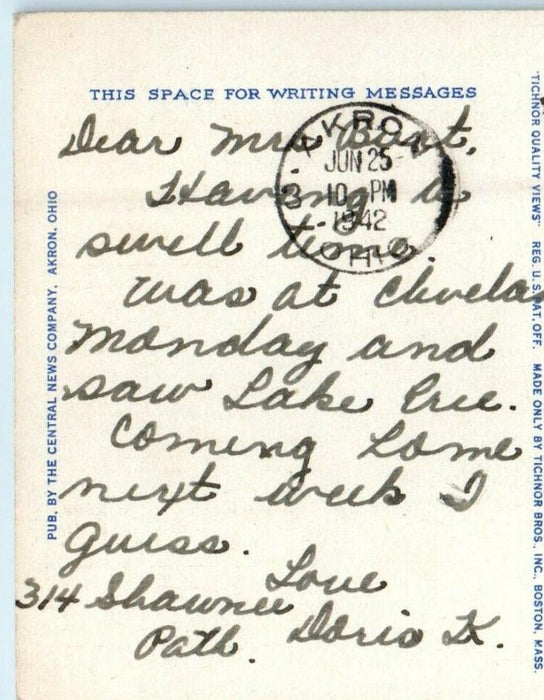 THIS SPACE FOR WRITING MESSAGES
Dear Mrs.
Having a
swell time.
was at Clevelan
Monday and
saw Lake Erie.
Coming home
next week I
guess.
Love
314 Shawnee
Path. Doris K.
AKRON
JUN 25
10 PM
1942
OHIO
3
PUB. BY THE CENTRAL NEWS COMPANY, AKRON, OHIO
"TICHNOR QUALITY VIEWS" REG. U.S. PAT. OFF. MADE ONLY BY TICHNOR BROS., INC., BOSTON, MASS.